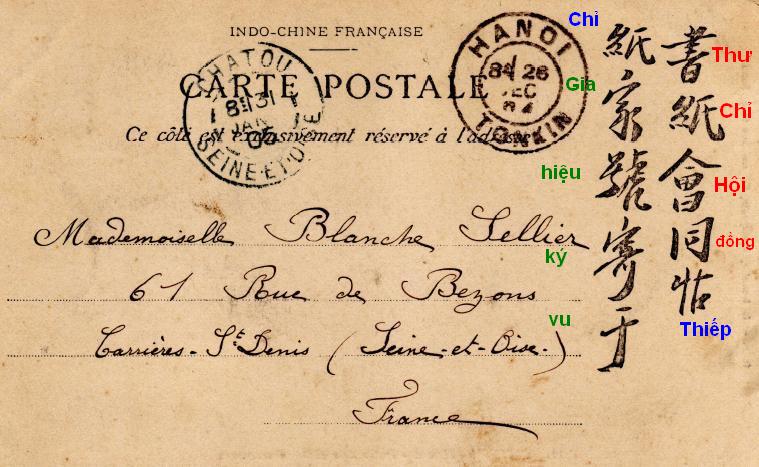 INDO-CHINE FRANÇAISE
CARTE POSTALE
Ce côté est exclusivement réservé à l'adresse
CHATOU
31
JAN
SEINE-ET-OISE
HANOI
26
DEC
TONKIN
Mademoiselle Blanche Sellier
61 Rue de Bezons
Carrières-St Denis (Seine-et-Oise.)
France
書紙會同帖
紙家號寄于
Thư
Chỉ
Hội
đồng
Thiếp
Chỉ
Gia
hiệu
ký
vu